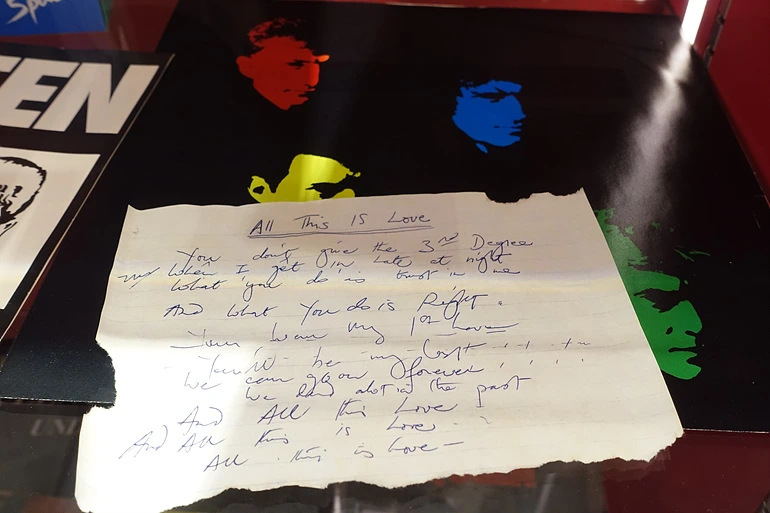 TEN
All This IS Love
You don't give the 3rd Degree
When I get in late at night
What you do is trust in me
And what You do is Right.
my 1st Love
You'll be my last . . . .
We can forever . . . .
We in the past
And All this Love
And All this is Love
All this is Love —